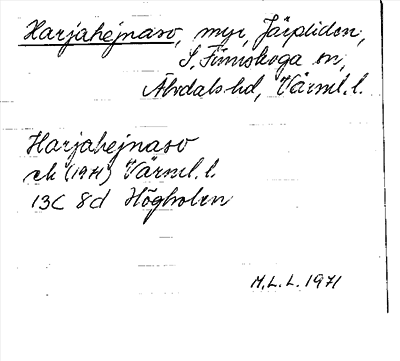 Harjahejnaso, myr, Järpliden,
S. Finnskoga sn,
Älvdals hd, Värml. l.
Harjahejnaso
ek (1971) Värml. l.
13C 8d Högholen
M.L.L. 1971